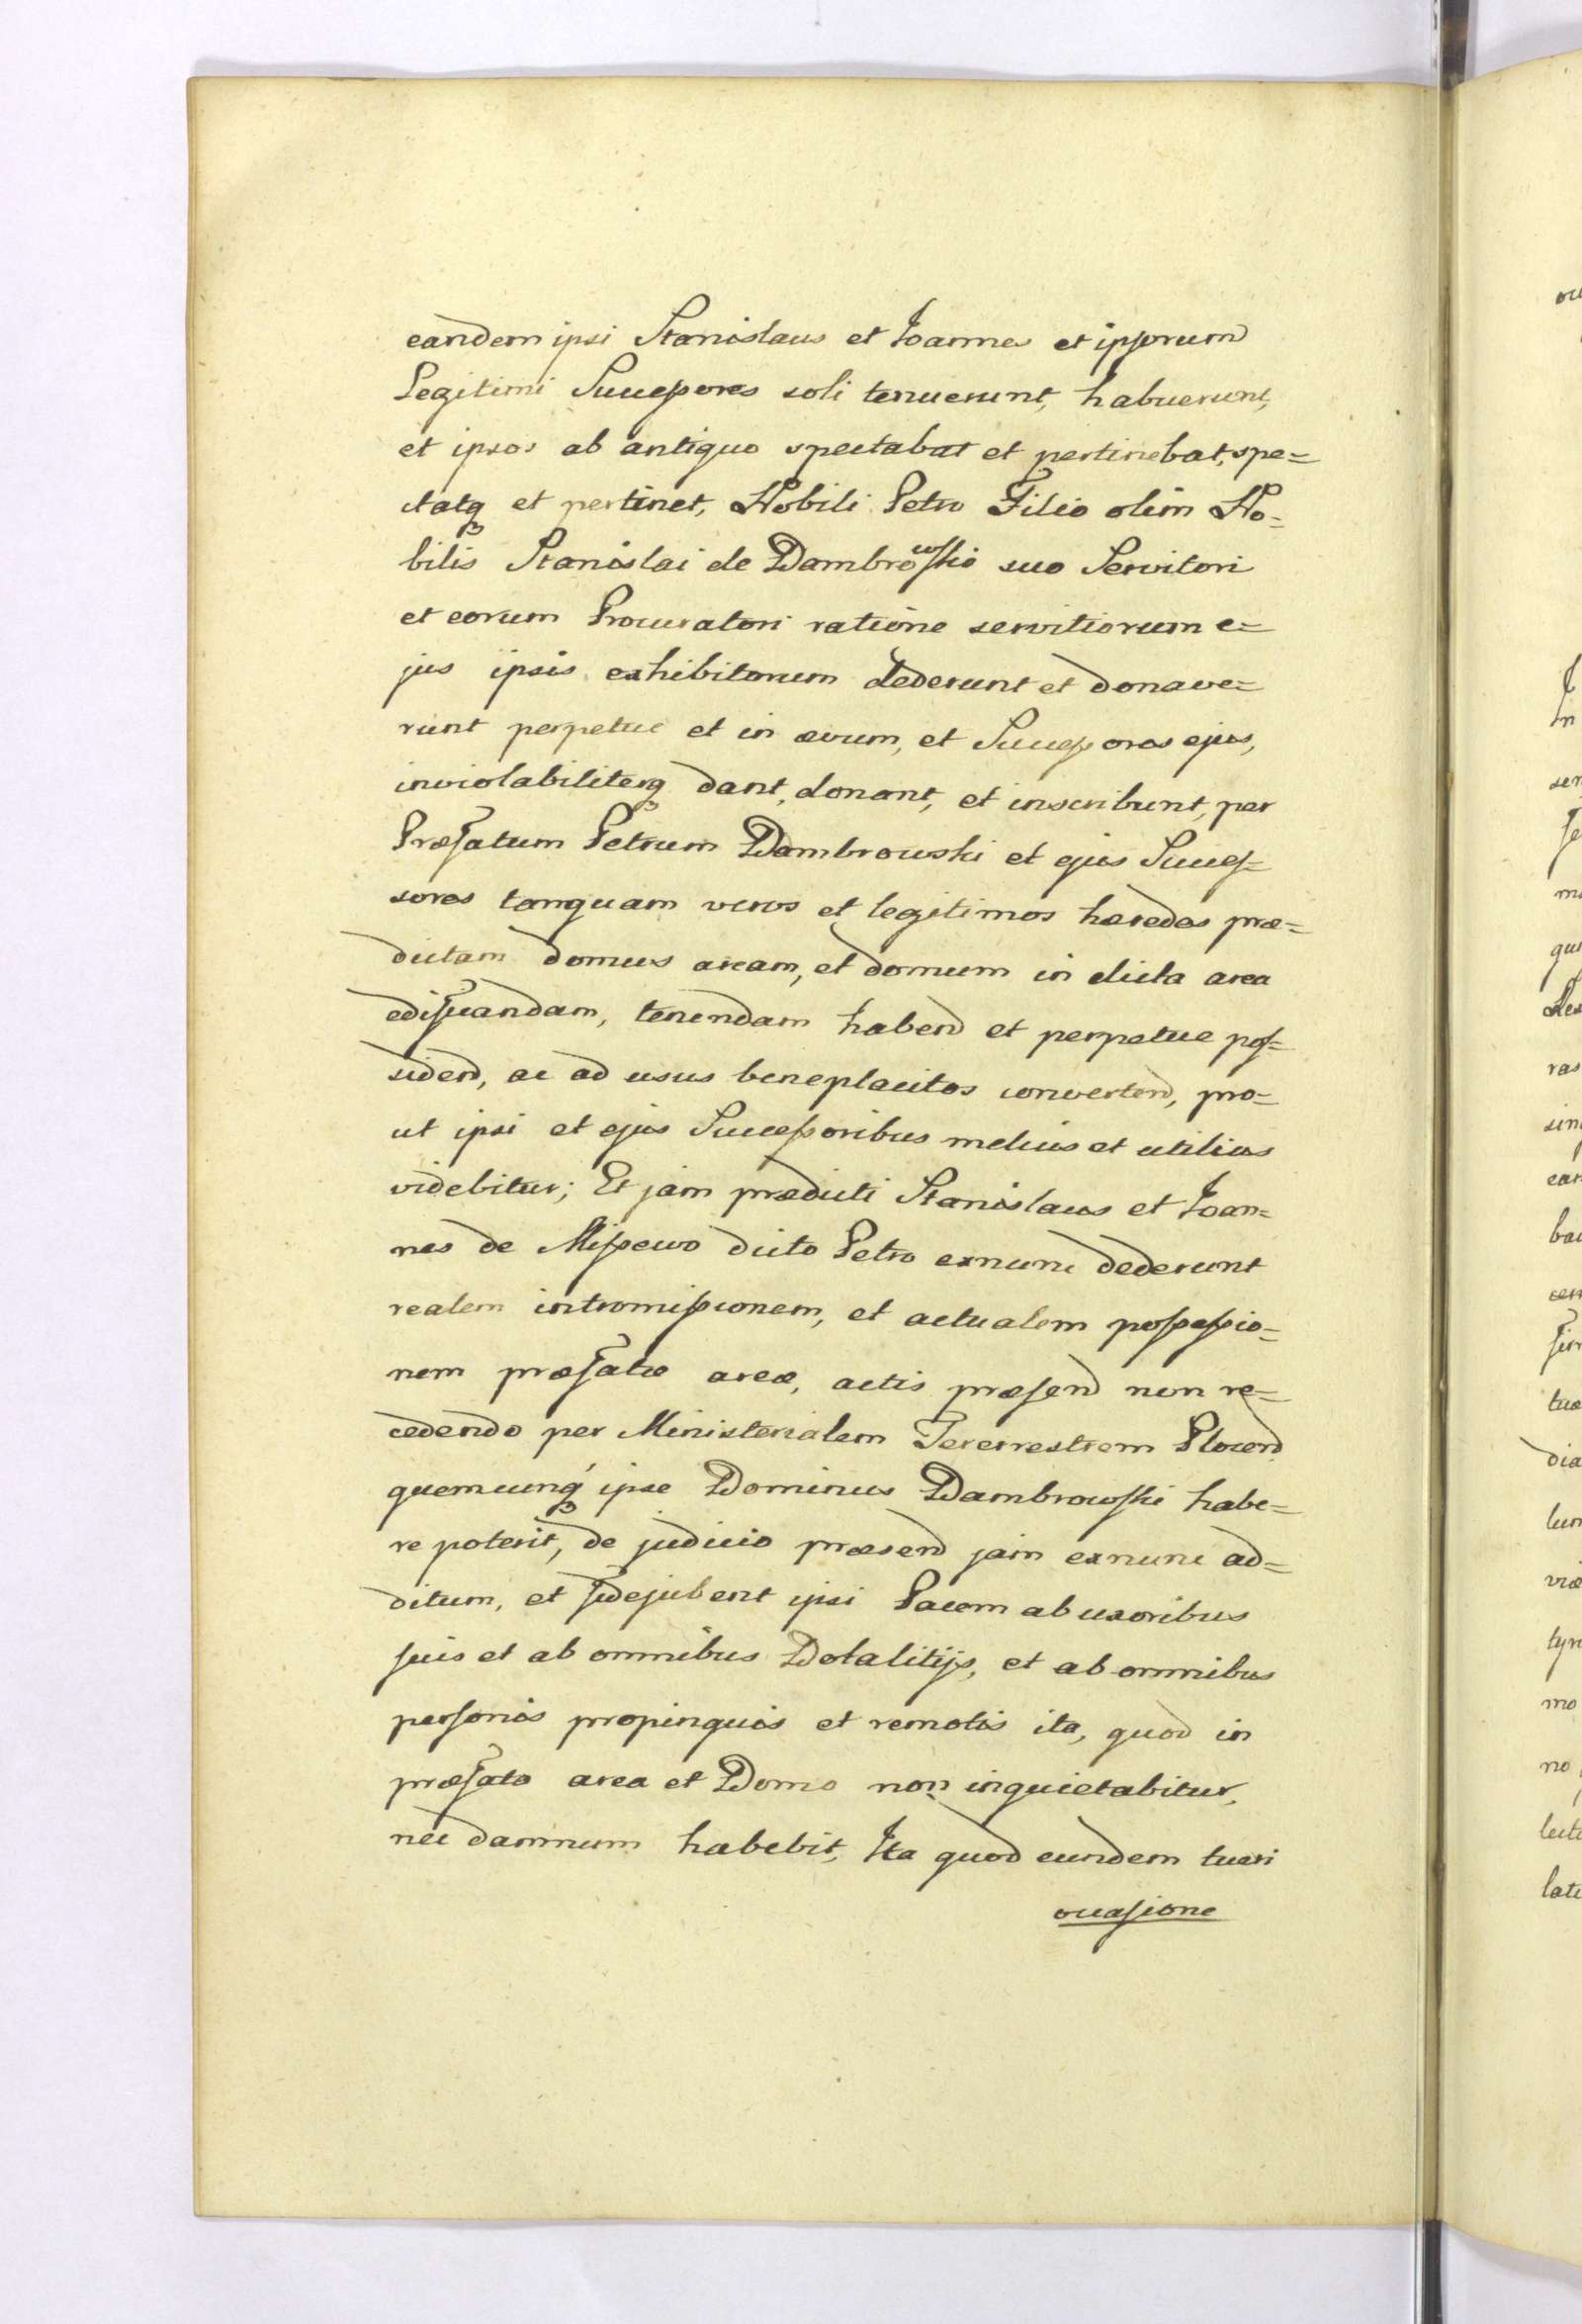 eandem ipsi Stanislaus et Joannes et ipsorum
Legitimi Successores soli tenuerunt, habuerunt,
et ipsos ab antiquo spectabat et pertinebat, spe=
ctatq; et pertinet, Nobili Petro Filio olim No=
bilis Stanislai de Dambrowskio suo Servitori
et eorum Procuratori ratione servitiorum e=
jus ipsis exhibitorum dederunt et donave=
runt perpetue et in ævum, et Successores ejus,
inviolabiliterq; dant, donant, et inscribunt, per
Præfatum Petrum Dambrowski et ejus Succes=
sores tanquam veros et legitimos hæredes præ=
dictam domus aream, et domum in dicta area
edificandam, tenendam habend et perpetue pos=
sidend, ac ad usus beneplacitos convertend, pro=
ut ipsi et ejus Successoribus melius et utilius
videbitur; Et jam prædicti Stanislaus et Joan=
nes de Missewo dicto Petro exnunc dederunt
realem intromissionem, et actualem possessio=
nem præfatæ areæ, actis præsend non re=
cedendo per Ministerialem Tererrestrem Plocend
quemcunq; ipse Dominus Dambrowski habe=
re poterit, de judicio præsend jam exnunc ad=
ditum, et fidejubent ipsi Pacem ab uxoribus
suis et ab omnibus Dotalitijs, et ab omnibus
personis propinquis et remotis ita, quod in
præfata area et Domo non inquietabitur,
nec damnum habebit, Ita quod eundem tueri
occasione